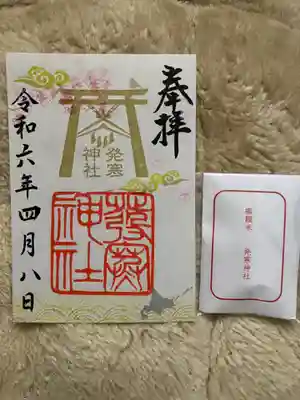 奉拝
発寒
神社
發寒
神社
令和六年四月八日
発寒神社